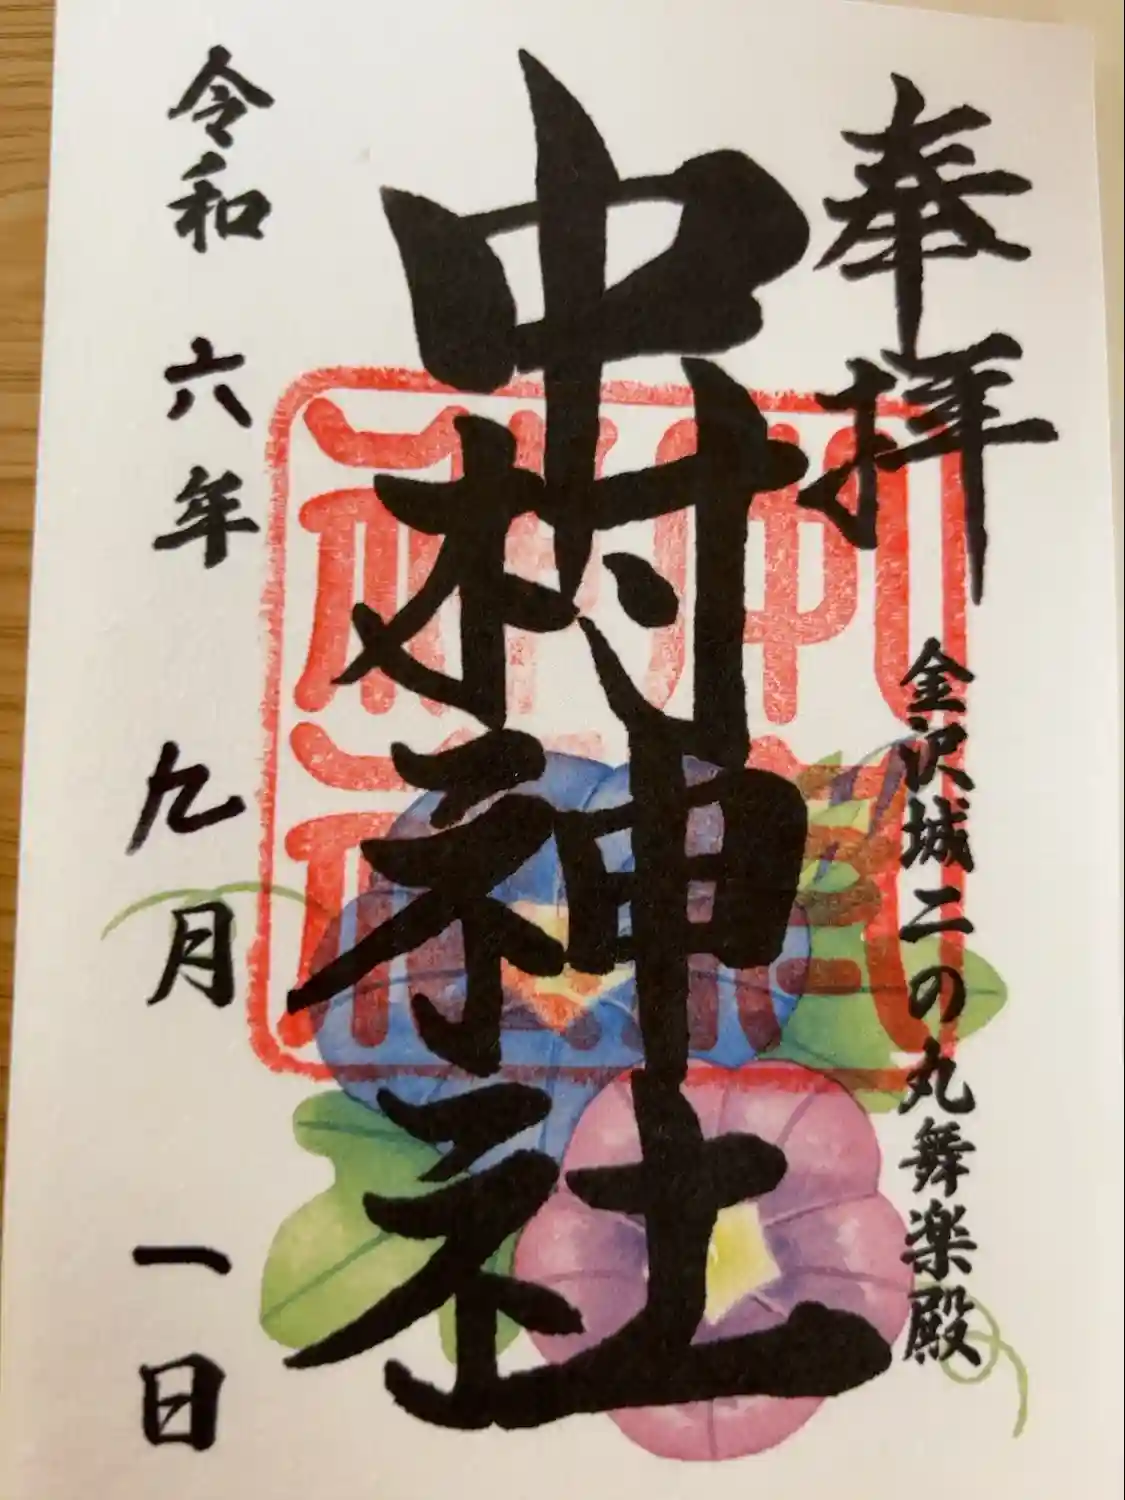 奉拝
金沢城二の丸舞楽殿
中村神社
令和 六年 九月 一日